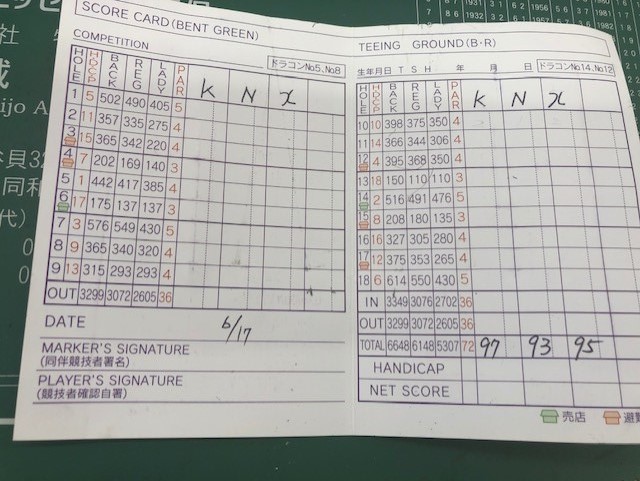 SCORE CARD(BENT GREEN)
COMPETITION
ドラコンNo.5、No.8
HOLE HDCP BACK REG LADY PAR K N x
1 5 502 490 405 5
2 11 357 335 275 4
3 15 365 342 220 4
4 7 202 169 140 3
5 1 442 417 385 4
6 17 175 137 137 3
7 3 576 549 430 5
8 9 365 340 320 4
9 13 315 293 293 4
OUT 3299 3072 2605 36
DATE 6/17
MARKER'S SIGNATURE
(同伴競技者署名)
PLAYER'S SIGNATURE
(競技者確認自署)
TEEING GROUND(B・R)
生年月日 T S H 年 月 日 ドラコンNo.14、No.12
HOLE HDCP BACK REG LADY PAR K N x
10 10 398 375 350 4
11 14 366 344 306 4
12 4 395 368 350 4
13 18 150 110 110 3
14 2 516 491 476 5
15 8 208 180 135 3
16 16 327 305 280 4
17 12 375 353 265 4
18 6 614 550 430 5
IN 3349 3076 2702 36
OUT 3299 3072 2605 36
TOTAL 6648 6148 5307 72 97 93 95
HANDICAP
NET SCORE
売店